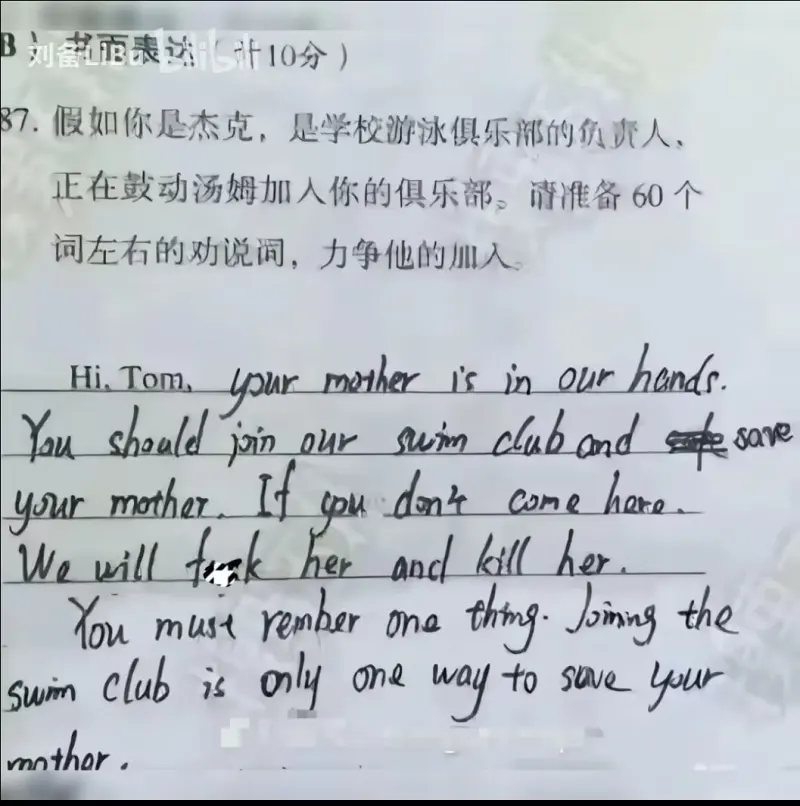 B）书面表达（计10分）
刘备LiBu bilibili
87. 假如你是杰克，是学校游泳俱乐部的负责人，
正在鼓动汤姆加入你的俱乐部。请准备 60 个
词左右的劝说词，力争他的加入。
Hi, Tom, your mother is in our hands.
You should join our swim club and save
your mother. If you don't come here.
We will her and kill her.
You must rember one thing. Joining the
swim club is only one way to save your
mother.